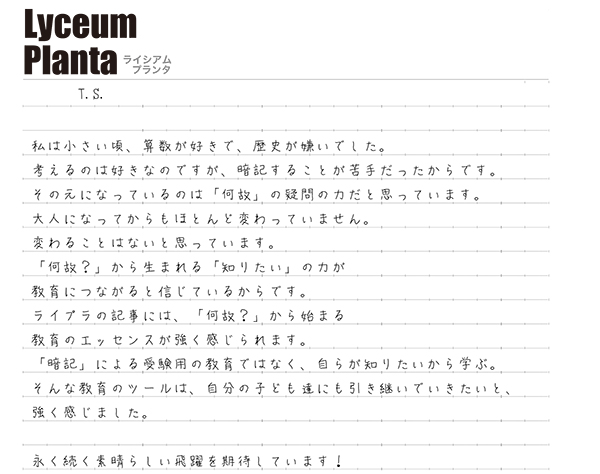 Lyceum
Planta ライシアム
プランタ
T.S.
私は小さい頃、算数が好きで、歴史が嫌いでした。
考えるのは好きなのですが、暗記することが苦手だったからです。
その元になっているのは「何故」の疑問の力だと思っています。
大人になってからもほとんど変わっていません。
変わることはないと思っています。
「何故？」から生まれる「知りたい」の力が
教育につながると信じているからです。
ライプラの記事には、「何故？」から始まる
教育のエッセンスが強く感じられます。
「暗記」による受験用の教育ではなく、自らが知りたいから学ぶ。
そんな教育のツールは、自分の子ども達にも引き継いでいきたいと、
強く感じました。
永く続く素晴らしい飛躍を期待しています！